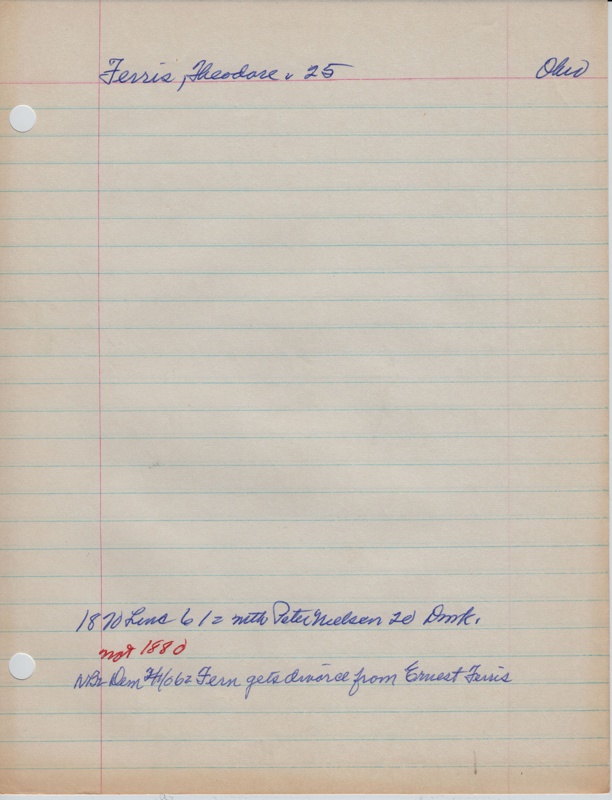 Ferris, Theodore v 25 Ohio
1870 Lins 6 1 = with Peter Nielsen 20 Dmk.
not 1880
NB= Dem 2/1/06= Fern gets divorce from Ernest Ferris